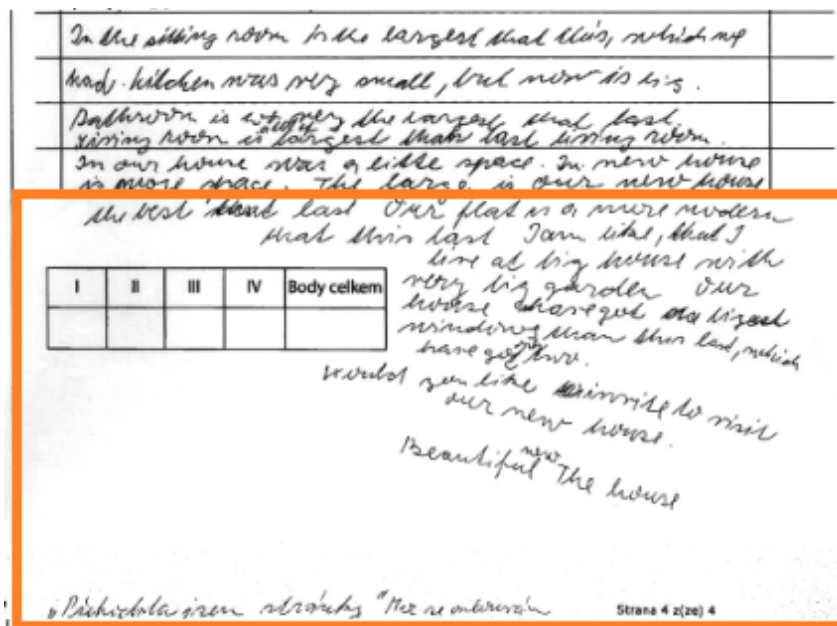 In the sitting room is the largest that this, which we
had. Kitchen was very small, but now is big.
Bathroom is very the largest that last
Living room is largest than last living room.
In our house was a little space. In new house
is more space. The large is our new house
the best that last Our flat is a more modern
that this last I am like, that I
live at big house with
very big garden Our
house have got bigest
window than this last, which
have got two.
I II III IV Body celkem
would you like invite to visit
our new house.
Beautiful new The house
Strana 4 z(ze) 4